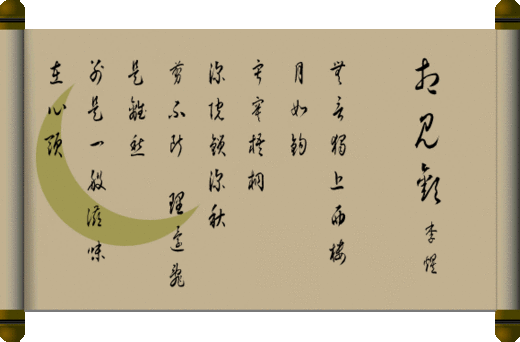 相見歡
李煜
無言獨上西樓
月如鉤
寂寞梧桐
深院鎖深秋
剪不斷 理還亂
是離愁
別是一般滋味
在心頭